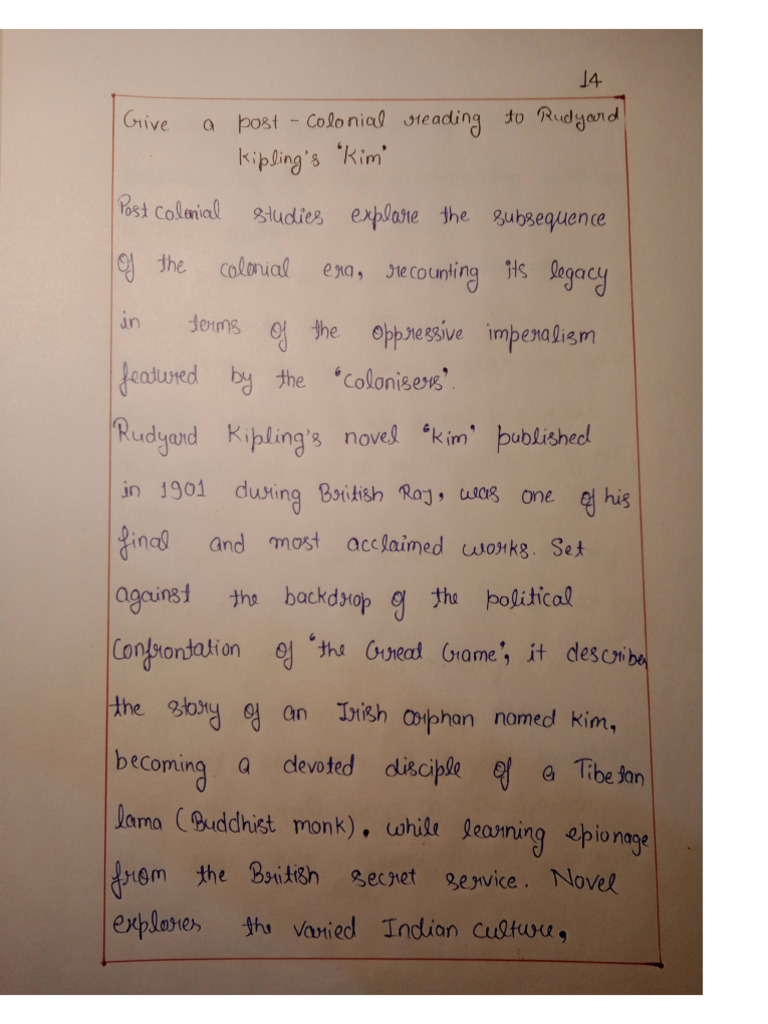 14
Give a post-colonial reading to Rudyard
Kipling's 'Kim'
Post colonial studies explore the subsequence
of the colonial era, recounting its legacy
in terms of the oppressive imperalism
featured by the 'colonisers'.
Rudyard Kipling's novel 'Kim' published
in 1901 during British Raj, was one of his
final and most acclaimed works. Set
against the backdrop of the political
confrontation of 'the Great Game', it describes
the story of an Irish orphan named Kim,
becoming a devoted disciple of a Tibetan
lama (Buddhist monk), while learning epionage
from the British secret service. Novel
explores the varied Indian culture,